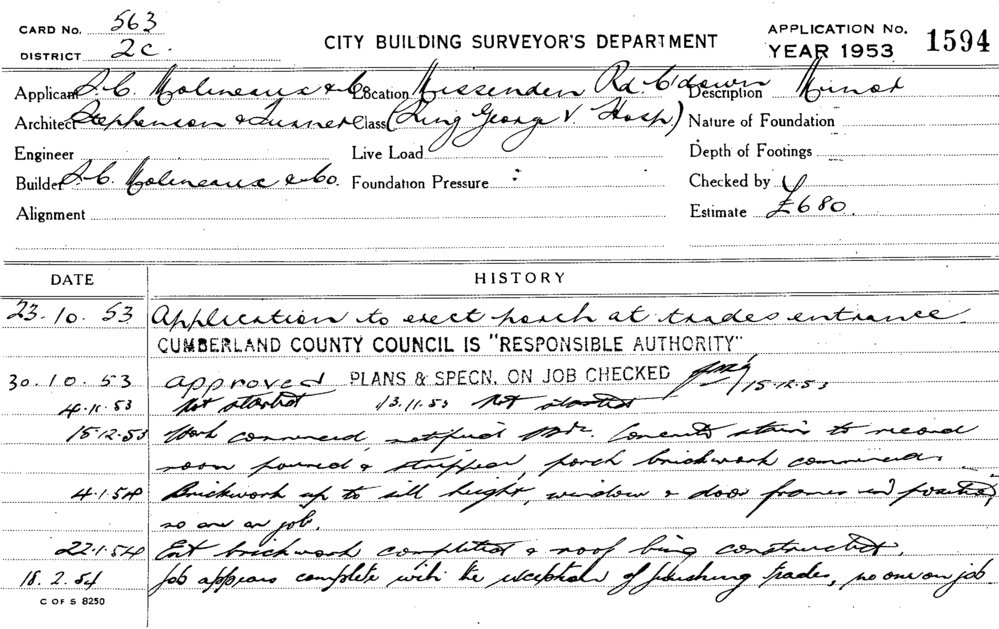 CARD No. 563
DISTRICT 2C.
CITY BUILDING SURVEYOR'S DEPARTMENT
APPLICATION No. YEAR 1953 1594
Applicant J.C. Molineaux & Co Location Missenden Rd. C'down Description Minor
Architect Stephenson & Turner Class (King George V. Hosp.) Nature of Foundation
Engineer Live Load Depth of Footings
Builder J.C. Molineaux & Co. Foundation Pressure : Checked by
Alignment Estimate £680.
DATE HISTORY
23.10.53 Application to erect porch at trades entrance.
CUMBERLAND COUNTY COUNCIL IS "RESPONSIBLE AUTHORITY"
30.10.53 approved PLANS & SPECN. ON JOB CHECKED 15.12.53
4.11.53 Not started 13.11.53 Not started
15.12.53 Work commenced, notified Concrete stairs to record
room poured & stripped, porch brickwork commenced.
4.1.54 Brickwork up to sill height, window & door frames in position,
no one on job.
22.1.54 Ext brickwork completed & roof being constructed.
18.2.54 Job appears complete with the exception of finishing trades, no one on job
C OF S 8250